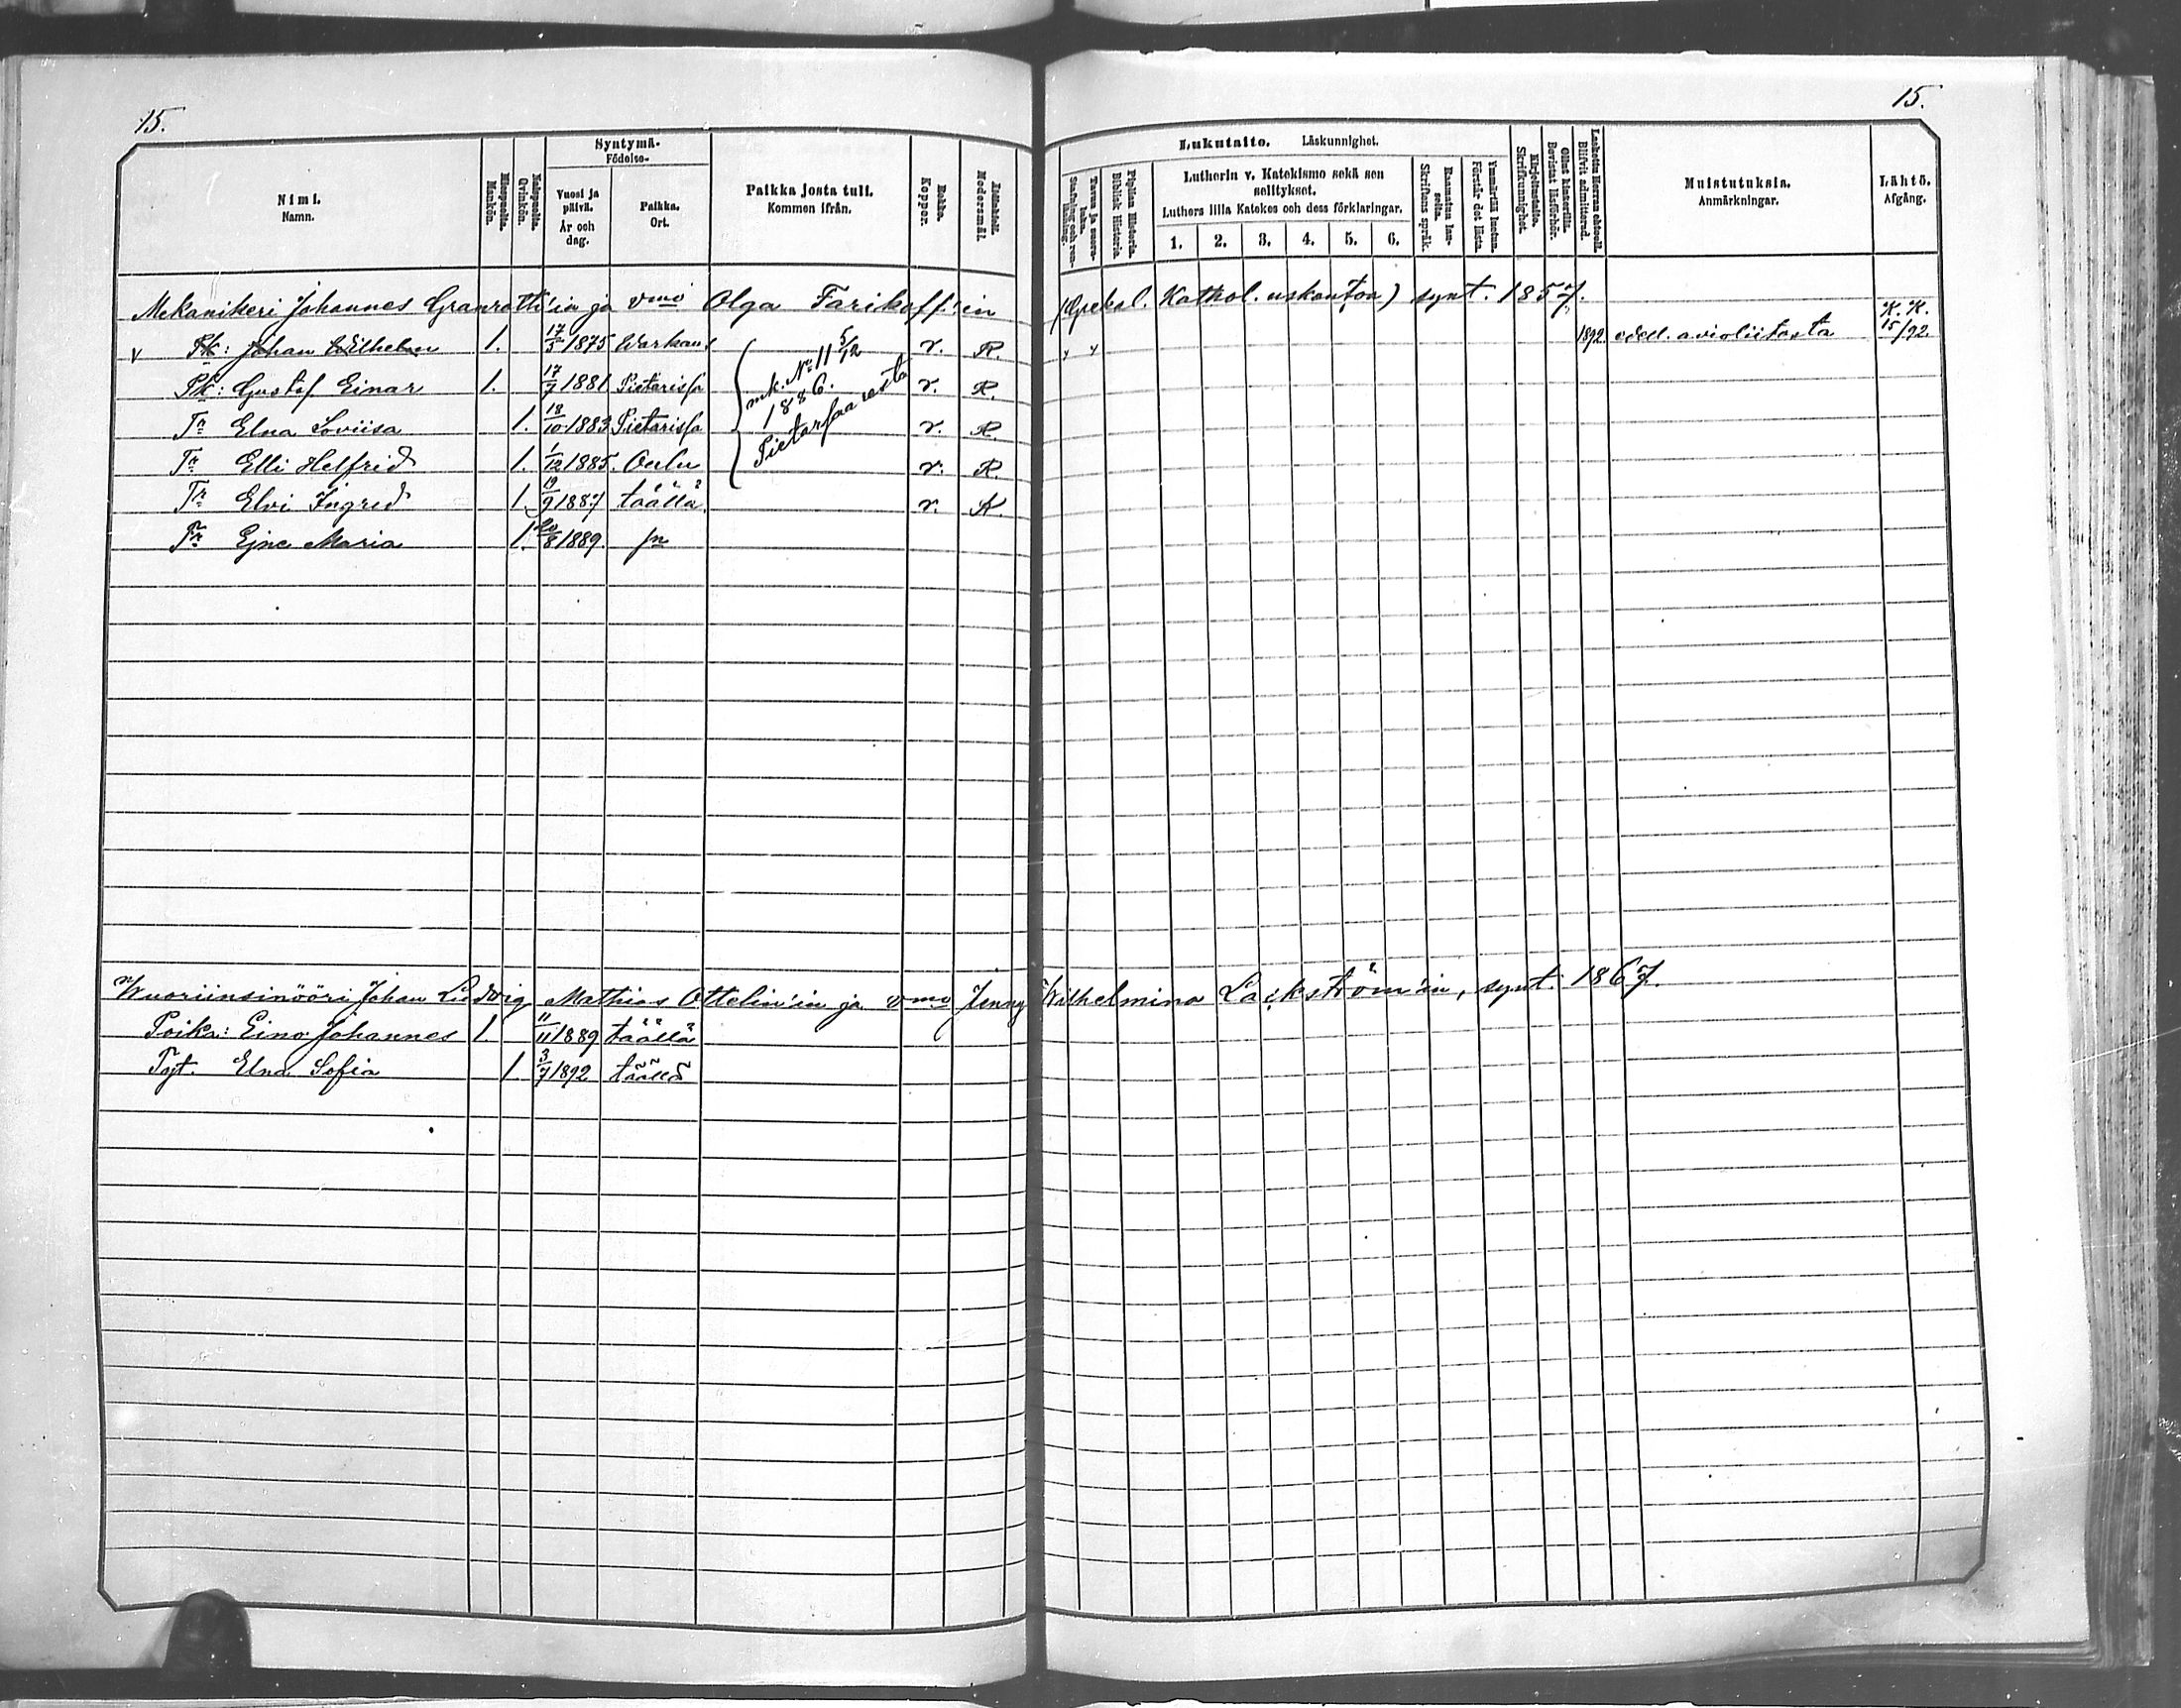 15.
15.
Nimi.
Namn.
Miespuolia.
Mankön.
Naispuolia.
Qvinkön.
Syntymä-
Födelse-
Vuosi ja päivä.
År och dag.
Paikka.
Ort.
Paikka josta tuli.
Kommen ifrån.
Rokko.
Koppor.
Äidinkieli.
Modersmål.
Lukutaito. Läskunnighet.
Piplian Historia.
Biblisk Historia.
Lutherin v. Katekismo sekä sen selitykset.
Luthers lilla Katekes och dess förklaringar.
1. 2. 3. 4. 5. 6.
Raamatun lauseita.
Skriftens språk.
Ymmärtää luetun.
Förstår det lästa.
Kirjoitustaito.
Skrifkunnighet.
Ollut kinterillä.
Bevistat läsförhör.
Laskettu Herran ehtoolle.
Blifvit admitterad.
Muistutuksia.
Anmärkningar.
Lähtö.
Afgång.
Mekanikeri Johannes Granroth'in ja vmo Olga Farikoff'in (Grekal. Kathol. uskontoa) synt. 1857.
v Pk: Johan Wilhelm 1. 17/5 1875 Warkaus r. R. 1892 eded. avioliitosta K. K. 15/92.
Pk: Gustaf Einar 1. 17/7 1881 Pietarissa r. R.
mk. No 11 5/12 1886. Pietarsaaresta
Tr Elna Loviisa 1. 18/10 1883 Pietarissa r. R.
Tr Elli Helfrid 1. 1/12 1885. Oulu r. R.
Tr Elvi Ingred 1. 19/9 1887 täällä r. K.
Tr Ejne Maria 1. 20/8 1889. sn
Wuoriinsinööri Johan Ludvig Mathias Ottelin'in ja vmo Jenny Wilhelmina Lackström'in, synt. 1867.
Poika: Eino Johannes 1. 11/11 1889 täällä
Tyt. Elna Sofia 1. 3/7 1892 täällä